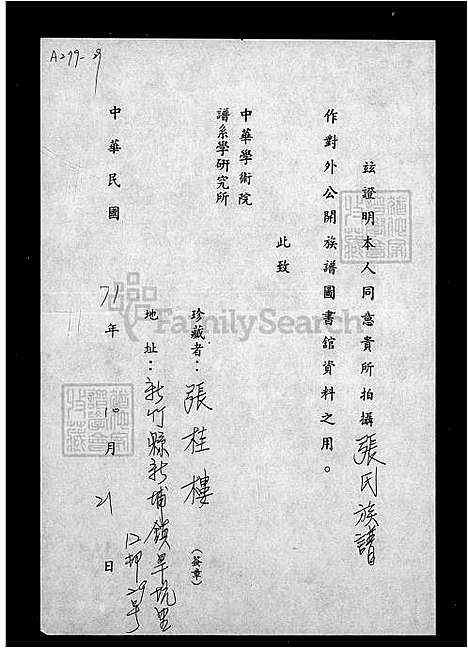 A279-29
玆證明本人同意貴所拍攝張氏族譜
作對外公開族譜圖書館資料之用。
此致
中華學術院
譜系學研究所
珍藏者：張桂樓（簽章）
地址：新竹縣新埔鎮旱坑里
口邦29号
中華民國71年10月21日
FamilySearch